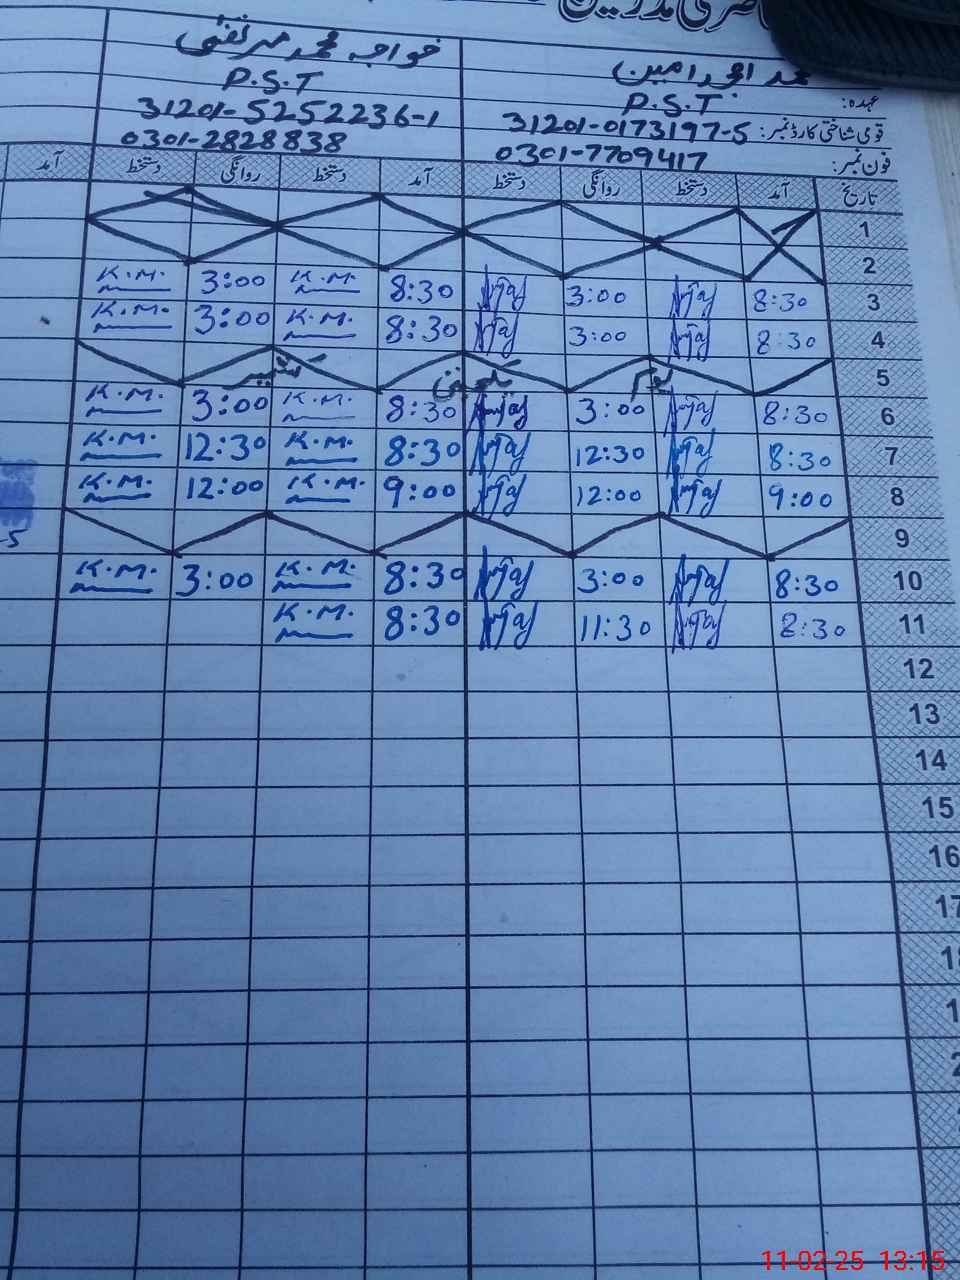 خواجہ محمد مرتضیٰ
محمد امین
P.S.T
P.S.T
عہدہ:
31201-5252236-1
31201-0173197-5
قومی شناختی کارڈ نمبر:
0301-2828838
0301-7709417
فون نمبر:
تاریخ آمد دستخط روانگی دستخط آمد دستخط روانگی دستخط آمد
1
2
3 8:30 3:00 8:30 K.M. 3:00 K.M.
4 8:30 3:00 8:30 K.M. 3:00 K.M.
5 یوم یکجہتی کشمیر
6 8:30 3:00 8:30 K.M. 3:00 K.M.
7 8:30 12:30 8:30 K.M. 12:30 K.M.
8 9:00 12:00 9:00 K.M. 12:00 K.M.
9
10 8:30 3:00 8:30 K.M. 3:00 K.M.
11 8:30 11:30 8:30 K.M.
12
13
14
15
16
17
11-02-25 13:15